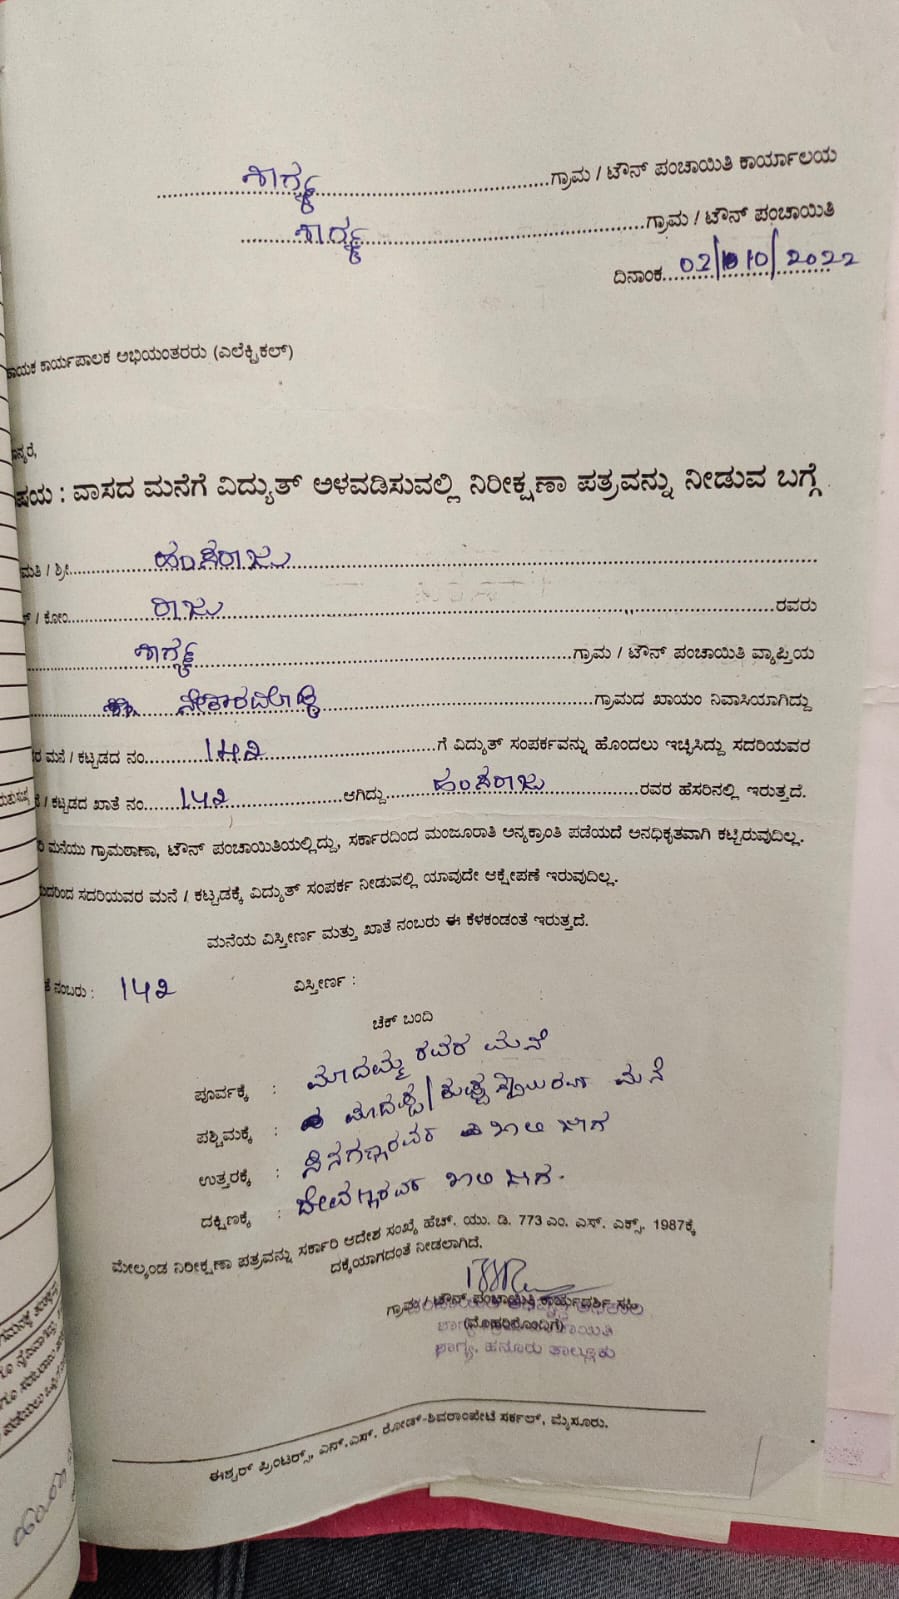 ಶಾಗ್ಯ ಗ್ರಾಮ / ಟೌನ್ ಪಂಚಾಯಿತಿ ಕಾರ್ಯಾಲಯ
ಶಾಗ್ಯ ಗ್ರಾಮ / ಟೌನ್ ಪಂಚಾಯಿತಿ
ದಿನಾಂಕ 02/10/2022
ಕಾರ್ಯಪಾಲಕ ಅಭಿಯಂತರರು (ಎಲೆಕ್ಟ್ರಿಕಲ್)
: ವಾಸದ ಮನೆಗೆ ವಿದ್ಯುತ್ ಅಳವಡಿಸುವಲ್ಲಿ ನಿರೀಕ್ಷಣಾ ಪತ್ರವನ್ನು ನೀಡುವ ಬಗ್ಗೆ
ಮತಿ / ಶ್ರೀ ಹಂಸರಾಜು
/ ಕೋಂ ರಾಜು ರವರು
ಶಾಗ್ಯ ಗ್ರಾಮ / ಟೌನ್ ಪಂಚಾಯಿತಿ ವ್ಯಾಪ್ತಿಯ
ಗ್ರಾಮದ ಖಾಯಂ ನಿವಾಸಿಯಾಗಿದ್ದು
ಮನೆ / ಕಟ್ಟಡದ ನಂ 142 ಗೆ ವಿದ್ಯುತ್ ಸಂಪರ್ಕವನ್ನು ಹೊಂದಲು ಇಚ್ಛಿಸಿದ್ದು ಸದರಿಯವರ
/ ಕಟ್ಟಡದ ಖಾತೆ ನಂ 142 ಆಗಿದ್ದು ಹಂಸರಾಜು ರವರ ಹೆಸರಿನಲ್ಲಿ ಇರುತ್ತದೆ.
ಮನೆಯು ಗ್ರಾಮಠಾಣಾ, ಟೌನ್ ಪಂಚಾಯಿತಿಯಲ್ಲಿದ್ದು, ಸರ್ಕಾರದಿಂದ ಮಂಜೂರಾತಿ ಅನ್ಯಕ್ರಾಂತಿ ಪಡೆಯದೆ ಅನಧಿಕೃತವಾಗಿ ಕಟ್ಟಿರುವುದಿಲ್ಲ.
ಸದರಿಯವರ ಮನೆ / ಕಟ್ಟಡಕ್ಕೆ ವಿದ್ಯುತ್ ಸಂಪರ್ಕ ನೀಡುವಲ್ಲಿ ಯಾವುದೇ ಆಕ್ಷೇಪಣೆ ಇರುವುದಿಲ್ಲ.
ಮನೆಯ ವಿಸ್ತೀರ್ಣ ಮತ್ತು ಖಾತೆ ನಂಬರು ಈ ಕೆಳಕಂಡಂತೆ ಇರುತ್ತದೆ.
ನಂಬರು : 142 ವಿಸ್ತೀರ್ಣ :
ಚೆಕ್ ಬಂದಿ
ಪೂರ್ವಕ್ಕೆ : ಮಾದಮ್ಮ ರವರ ಮನೆ
ಪಶ್ಚಿಮಕ್ಕೆ : ಮಾದಪ್ಪ/ ಮನೆ
ಉತ್ತರಕ್ಕೆ : ಖಾಲಿ ಜಾಗ
ದಕ್ಷಿಣಕ್ಕೆ : ಖಾಲಿ ಜಾಗ.
ಮೇಲ್ಕಂಡ ನಿರೀಕ್ಷಣಾ ಪತ್ರವನ್ನು ಸರ್ಕಾರಿ ಆದೇಶ ಸಂಖ್ಯೆ ಹೆಚ್. ಯು. ಡಿ. 773 ಎಂ. ಎಸ್. ಎಕ್ಸ್. 1987ಕ್ಕೆ
ದಕ್ಕೆಯಾಗದಂತೆ ನೀಡಲಾಗಿದೆ.
ಗ್ರಾಮ / ಟೌನ್ ಪಂಚಾಯಿತಿ ಕಾರ್ಯದರ್ಶಿ ಸಹಿ
(ಮೊಹರಿನೊಂದಿಗೆ)
ಶಾಗ್ಯ, ಹನೂರು ತಾಲ್ಲೂಕು
ಈಶ್ವರ್ ಪ್ರಿಂಟರ್ಸ್, ಎನ್.ಎಸ್. ರೋಡ್-ಶಿವರಾಂಪೇಟೆ ಸರ್ಕಲ್, ಮೈಸೂರು.